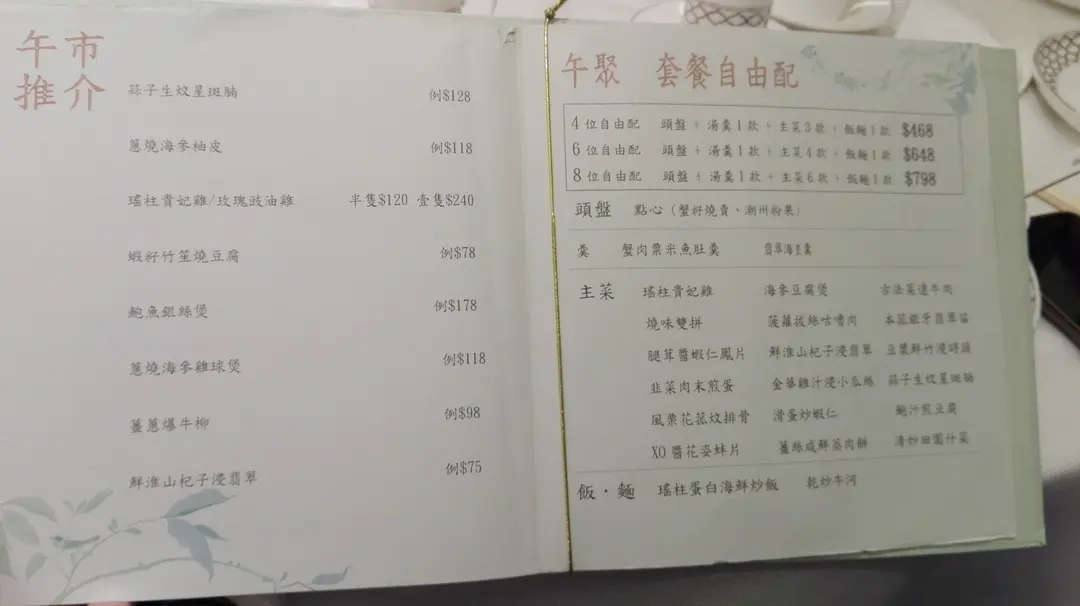 午市
推介
蒜子生炆星斑腩 例$128
蔥燒海參柚皮 例$118
瑤柱貴妃雞/玫瑰豉油雞 半隻$120 壹隻$240
蝦籽竹笙燒豆腐 例$78
鮑魚銀絲煲 例$178
蔥燒海參雞球煲 例$118
薑蔥爆牛柳 例$98
鮮淮山杞子浸翡翠 例$75
午聚 套餐自由配
4位自由配 頭盤 + 湯羹1款 + 主菜3款 + 飯麵1款 $468
6位自由配 頭盤 + 湯羹1款 + 主菜4款 + 飯麵1款 $648
8位自由配 頭盤 + 湯羹1款 + 主菜6款 + 飯麵1款 $798
頭盤 點心（蟹籽燒賣、潮州粉果）
羹 蟹肉粟米魚肚羹 翡翠海皇羹
主菜 瑤柱貴妃雞 海參豆腐煲 古法菜遠牛肉
燒味雙拼 菠蘿拔絲咕嚕肉 本菇銀牙翡翠苗
腿茸醬蝦仁鳳片 鮮淮山杞子浸翡翠 豆漿鮮竹浸時蔬
韭菜肉末煎蛋 金華雞汁浸小瓜絲 蒜子生炆星斑腩
風栗花菇炆排骨 滑蛋炒蝦仁 鮑汁煎豆腐
XO醬花姿蚌片 薑絲咸鮮蒸肉餅 清炒田園什菜
飯・麵 瑤柱蛋白海鮮炒飯 乾炒牛河